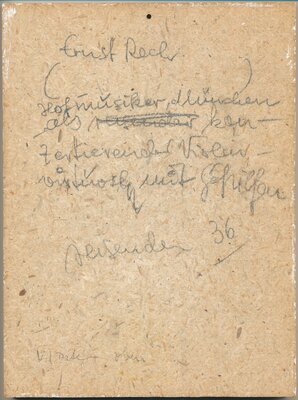 Ernst Reck
(                    )
Hofmusiker, München
als kon-
zertierender Violin-
virtuose mit
reisender 36
oben